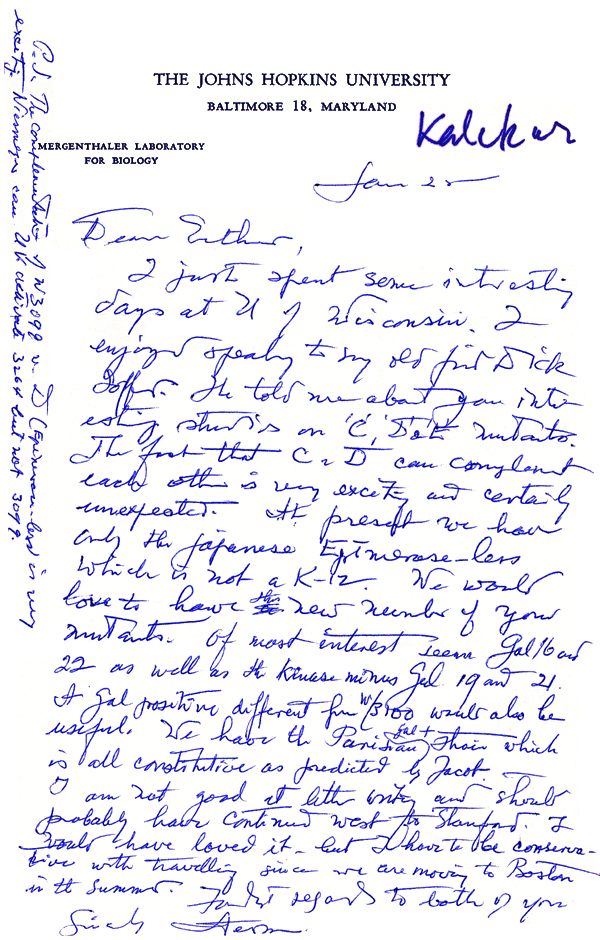 THE JOHNS HOPKINS UNIVERSITY
BALTIMORE 18, MARYLAND
Kalckar
MERGENTHALER LABORATORY
FOR BIOLOGY
Jan 25
Dear Esther,
I just spent some interesting
days at U of Wisconsin. I
enjoyed speaking to my old friend Dick
He told me about your inte
esting studies on 'C', D mutants.
The fact that C & D can complement
each other is very exciting and certainly
unexpected. At present we have
only the japanese Epimerase-less
which is not a K-12. We would
love to have the new number of your
mutants. Of most interest seem Gal 16 and
22 as well as the kinase minus Gal 19 and 21.
A gal positive different from W3100 would also be
useful. We have the Parisian gal + strain which
is all constitutive as predicted by Jacob.
I am not good at letter writing and should
probably have continued west to Stanford. I
would have loved it - but I have to be conserva-
tive with travelling since we are moving to Boston
in the summer. Fondest regards to both of you
Sincerely Herman
P.S. The complementation of W3098 v. D (Epimerase-less is very
exciting. can UV activate 3264 but not 3099.